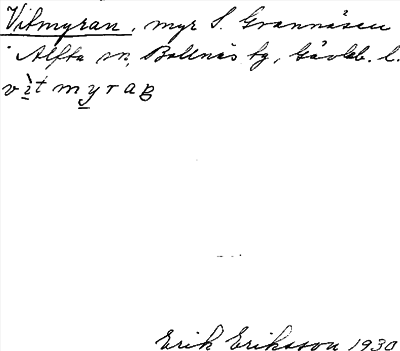 Vitmyran, myr S. Grannåsen
Alfta sn, Bollnäs tg, Gävleb. l.
vìt myraƞ
Erik Eriksson 1930